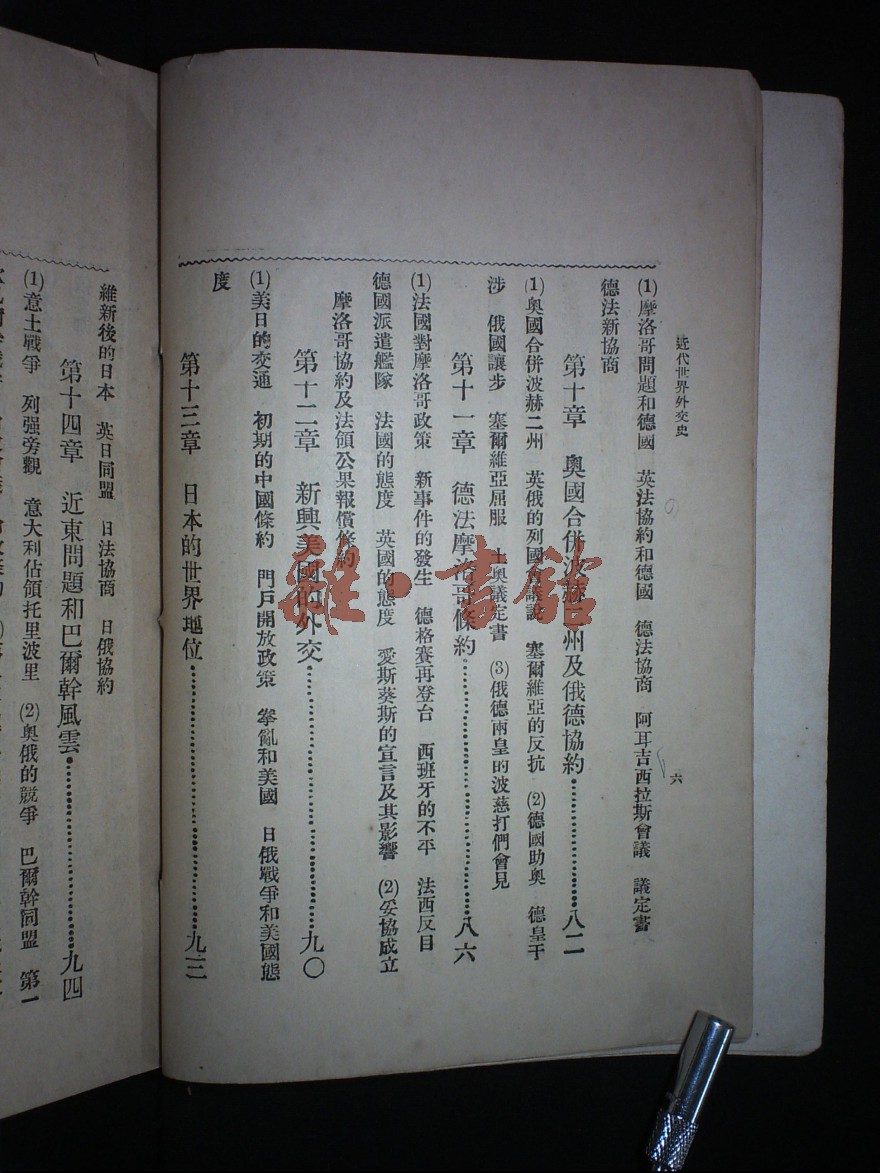 近代世界外交史
六
(1)摩洛哥問題和德國　英法協約和德國　德法協商　阿耳吉西拉斯會議　議定書
德法新協商
第十章　奧國合併波赫二州及俄德協約………八二
(1)奧國合併波赫二州　英俄的列國會議說　塞爾維亞的反抗　(2)德國助奧　德皇干
涉　俄國讓步　塞爾維亞屈服　土奧議定書　(3)俄德兩皇的波慈打們會見
第十一章　德法摩洛哥條約………八六
(1)法國對摩洛哥政策　新事件的發生　德格賽再登台　西班牙的不平　法西反目
德國派遣艦隊　法國的態度　英國的態度　愛斯葵斯的宣言及其影響　(2)妥協成立
摩洛哥協約及法領公果報償條約
第十二章　新興美國的外交………九〇
(1)美日的交通　初期的中國條約　門戶開放政策　拳亂和美國　日俄戰爭和美國態
度
第十三章　日本的世界地位………九三
維新後的日本　英日同盟　日法協商　日俄協約
第十四章　近東問題和巴爾幹風雲………九四
(1)意土戰爭　列强旁觀　意大利佔領托里波里　(2)奧俄的競爭　巴爾幹同盟　第一
雜·書館